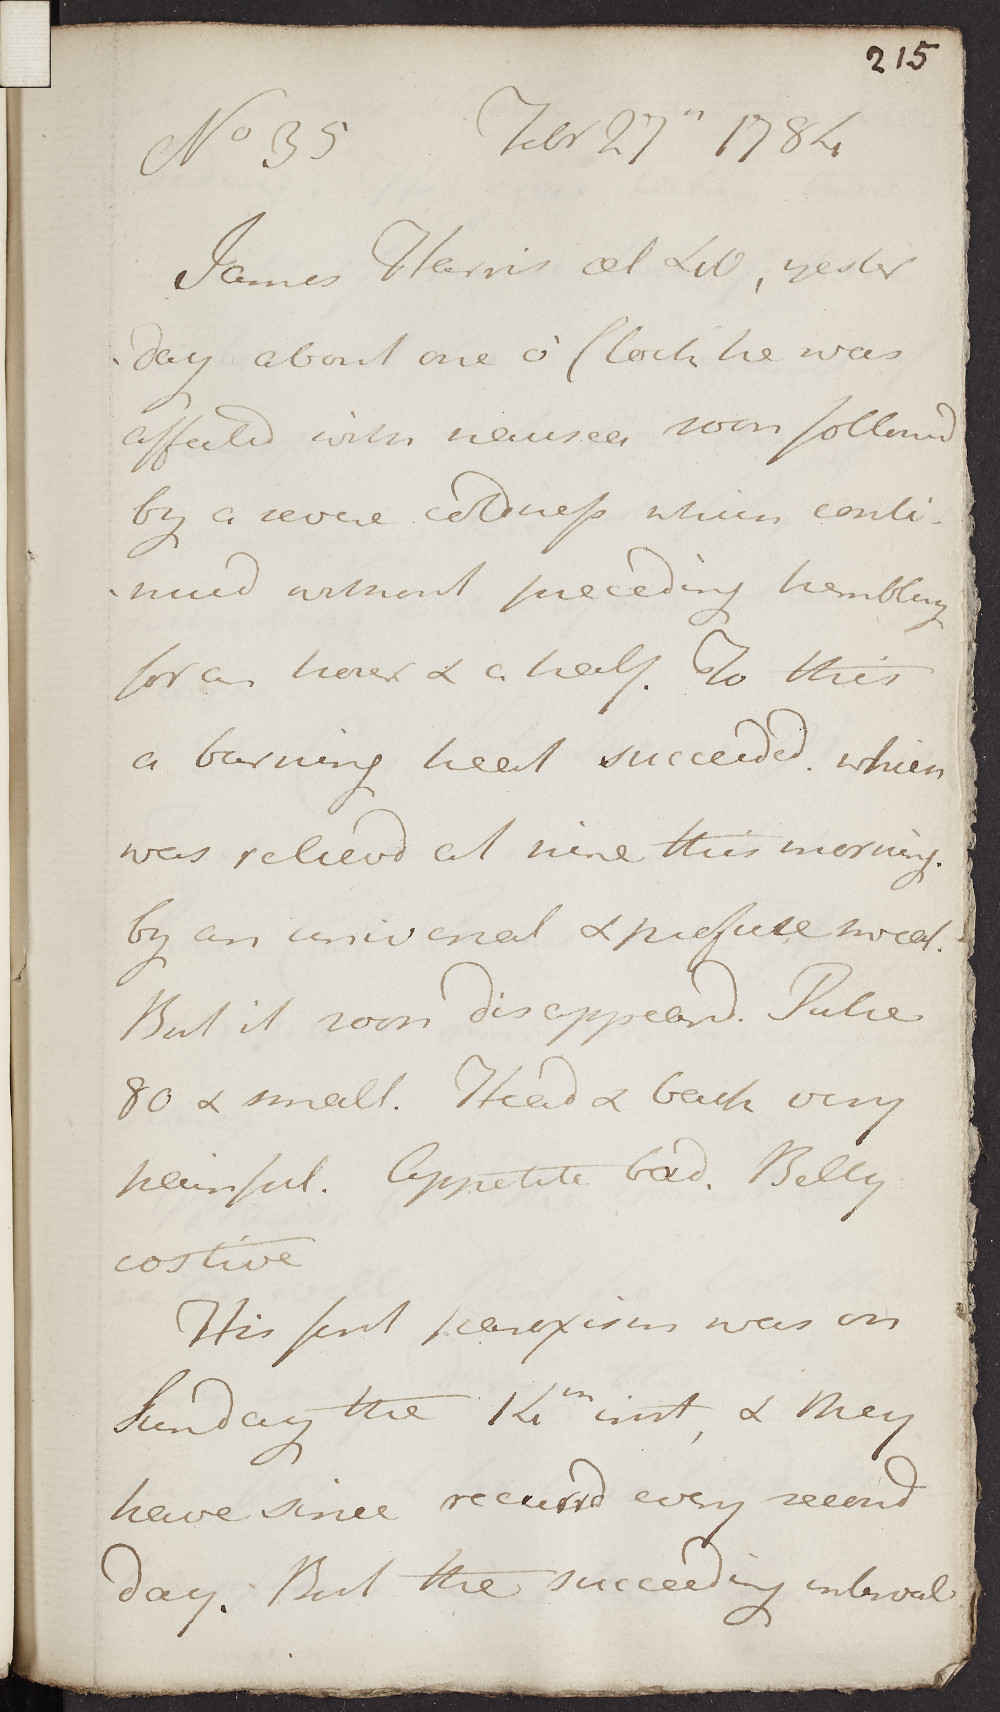 215
No 35 Febr 27th 1784
James Harris æt 40, yester
-day about one o' Clock he was
affected with nausea soon followd
by a severe coldness which conti-
-nued without preceding trembling
for an hour & a half. To this
a burning heat succeeded. which
was relievd at nine this morning.
by an universal & profuse sweat.
But it soon disappeard. Pulse
80 & small. Head & back very
painful. Appetite bad. Belly
costive
His first paroxism was on
Sunday the 14th inst, & they
have since recurrd every second
day. But the succeeding interval